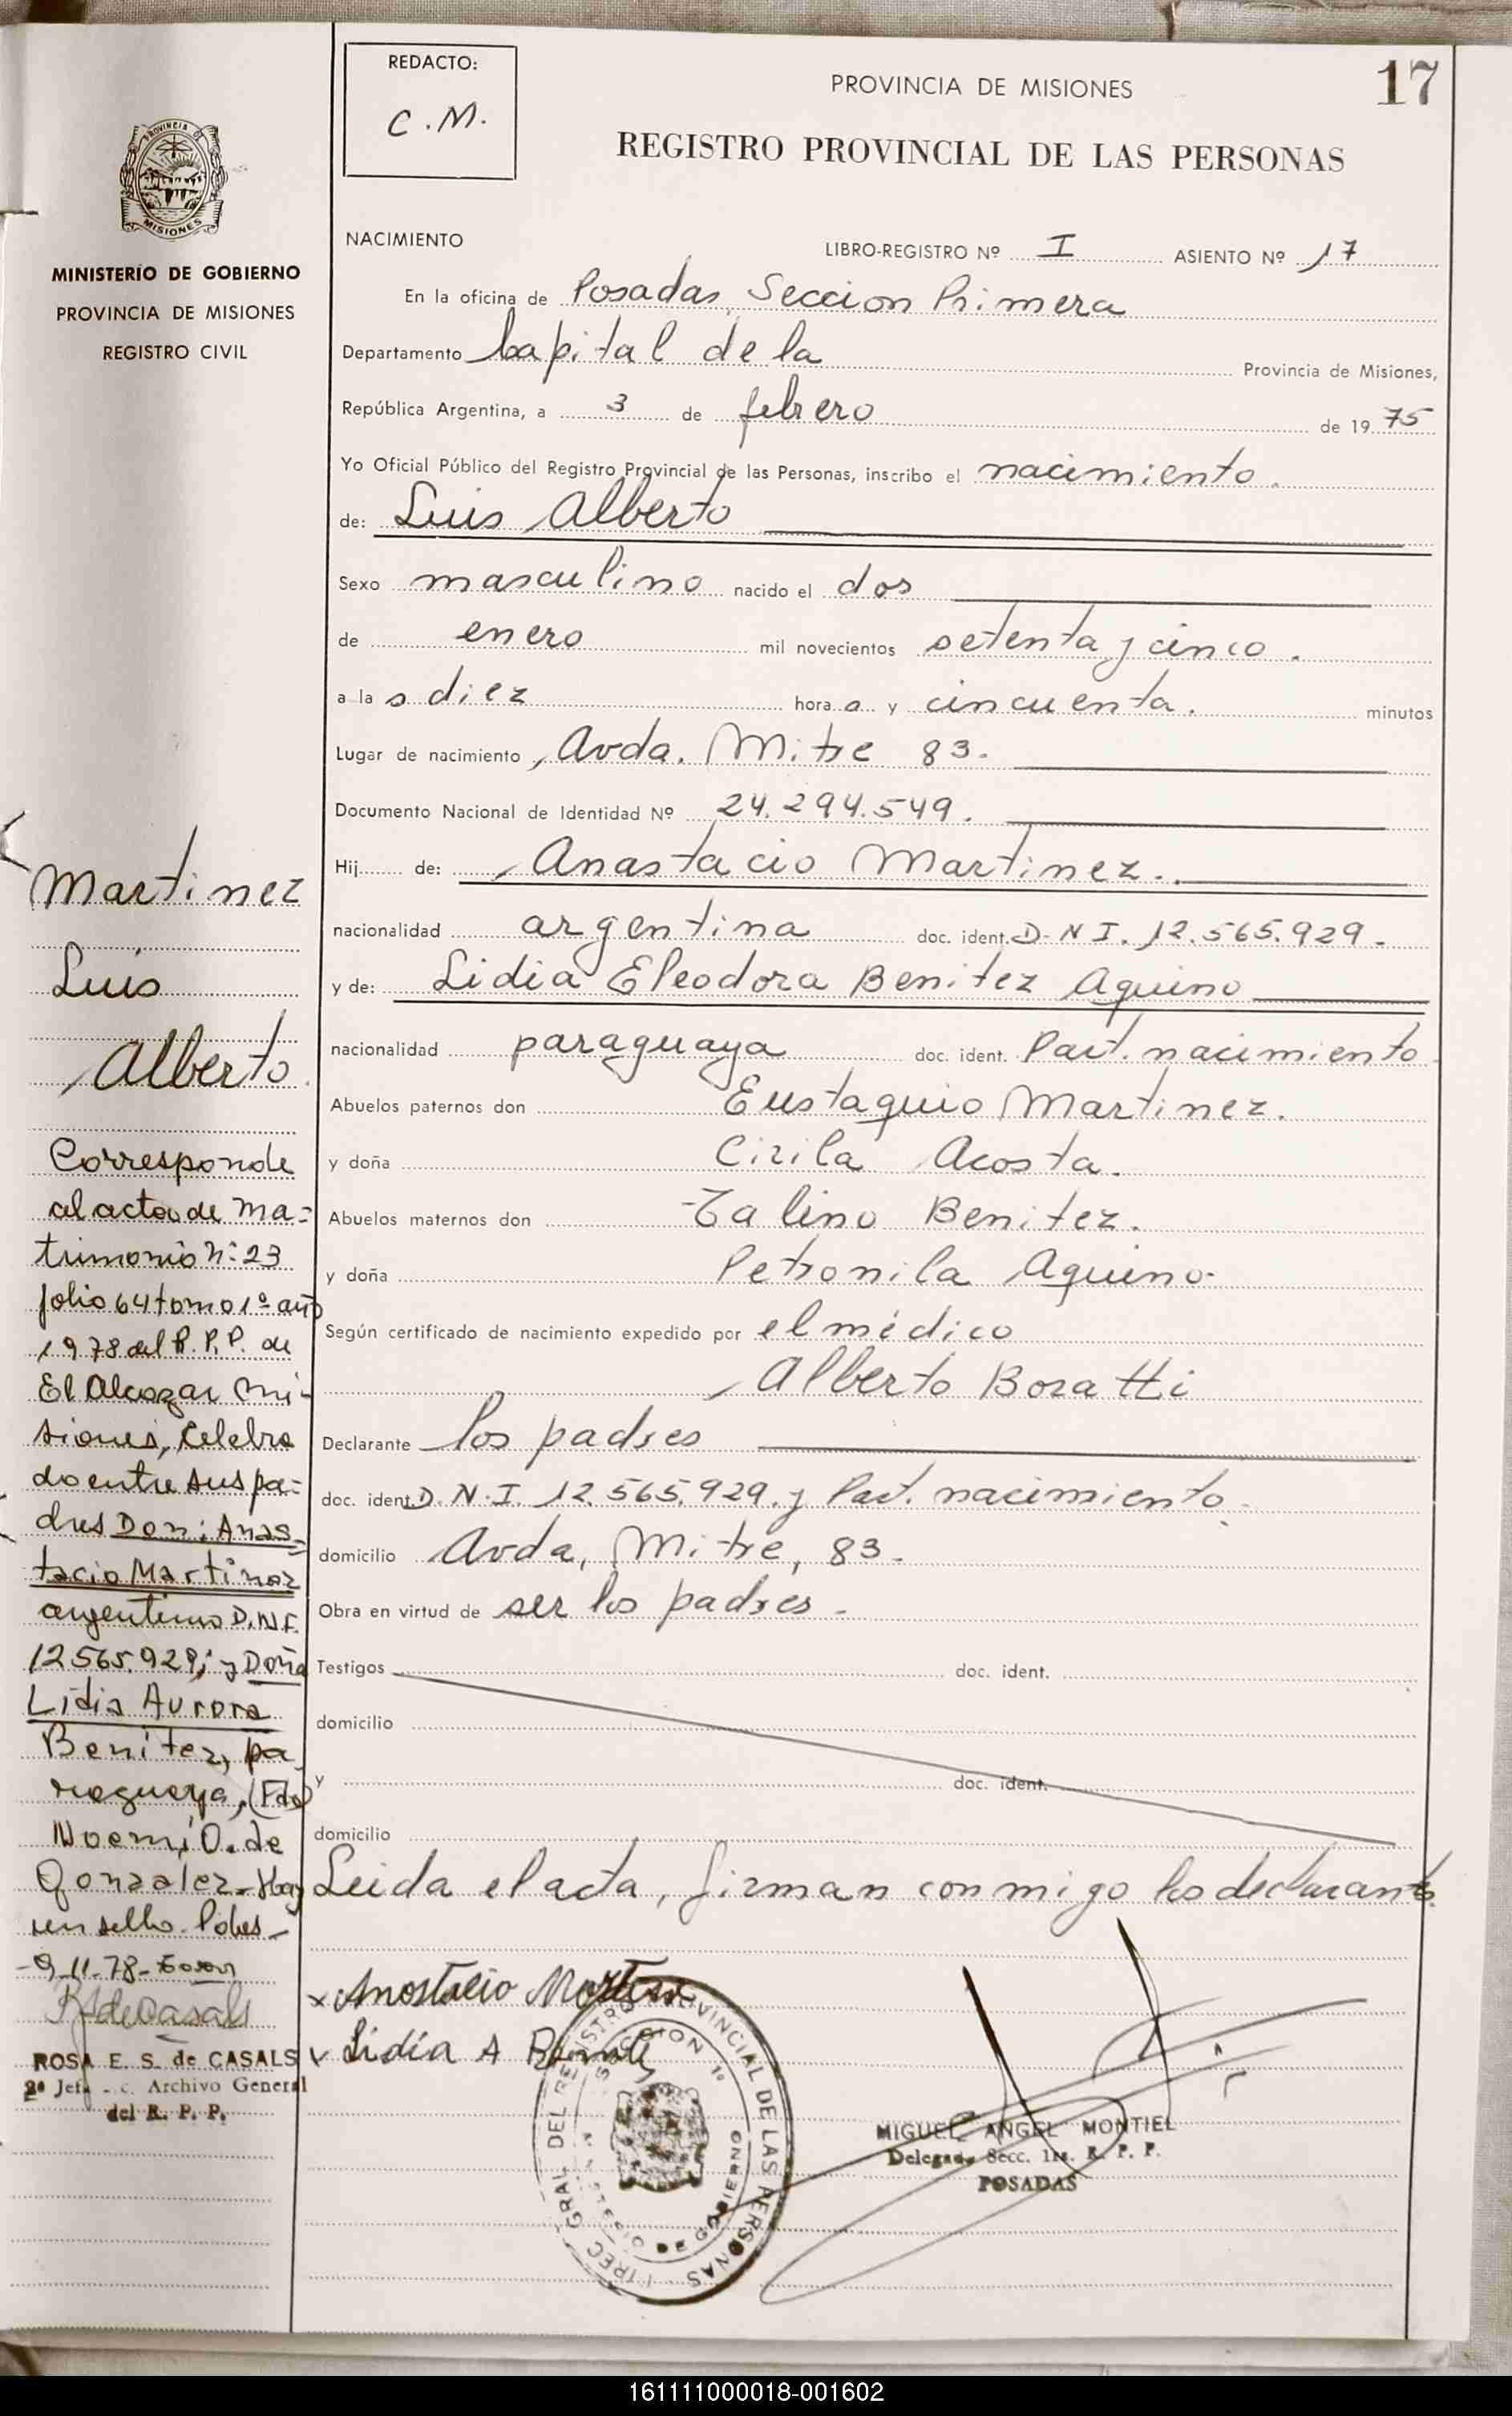 REDACTO:
C.M.
PROVINCIA DE MISIONES
17
REGISTRO PROVINCIAL DE LAS PERSONAS
PROVINCIA DE
MISIONES
MINISTERIO DE GOBIERNO
PROVINCIA DE MISIONES
REGISTRO CIVIL
NACIMIENTO
LIBRO-REGISTRO Nº I ASIENTO Nº 17
En la oficina de Posadas, Seccion Primera
Departamento Capital de la Provincia de Misiones,
República Argentina, a 3 de febrero de 1975
Yo Oficial Público del Registro Provincial de las Personas, inscribo el nacimiento.
de: Luis Alberto
Sexo masculino nacido el dos
de enero mil novecientos setenta y cinco.
a las diez horas y cincuenta. minutos
Lugar de nacimiento, Avda. Mitre 83.
Documento Nacional de Identidad Nº 24.294.549.
Hij de: Anastacio Martinez.
nacionalidad argentina doc. ident. D.N I. 12.565.929.
y de: Lidia Eleodora Benitez Aquino
nacionalidad paraguaya doc. ident. Part. nacimiento
Abuelos paternos don Eustaquio Martinez.
y doña Cirila Acosta.
Abuelos maternos don Talino Benitez.
y doña Petronila Aquino.
Según certificado de nacimiento expedido por el médico
Alberto Boratti
Declarante los padres
doc. ident. D.N.I. 12.565.929. y Part. nacimiento.
domicilio Avda, Mitre, 83.
Obra en virtud de ser los padres.
Testigos doc. ident.
domicilio
y doc. ident.
domicilio
Leida el acta, firman conmigo los declarantes.
Anastacio Martinez
Lidia A Benitez
DIREC. GRAL. DEL REGISTRO PROVINCIAL DE LAS PERSONAS
SECCION 1º
DE GOBIERNO
MIGUEL ANGEL MONTIEL
Delegado Secc. 1ra. R. P. P.
POSADAS
Martinez
Luis
Alberto
Corresponde
al acta de ma=
trimonio nº 23
folio 64 tomo 1º año
1978 del R.P.P. de
El Alcazar Mi-
siones, Celebra
do entre sus pa=
dres Don: Anas=
tacio Martinez
argentino D.N.I.
12565.929; y Doña
Lidia Aurora
Benitez, pa
raguaya, (Fdo)
Noemi O. de
Gonzalez - Hay
un sello. Pdas -
9-11-78-
R S de Casals
ROSA E. S. de CASALS
2ª Jefa Archivo General
del R. P. P.
161111000018-001602